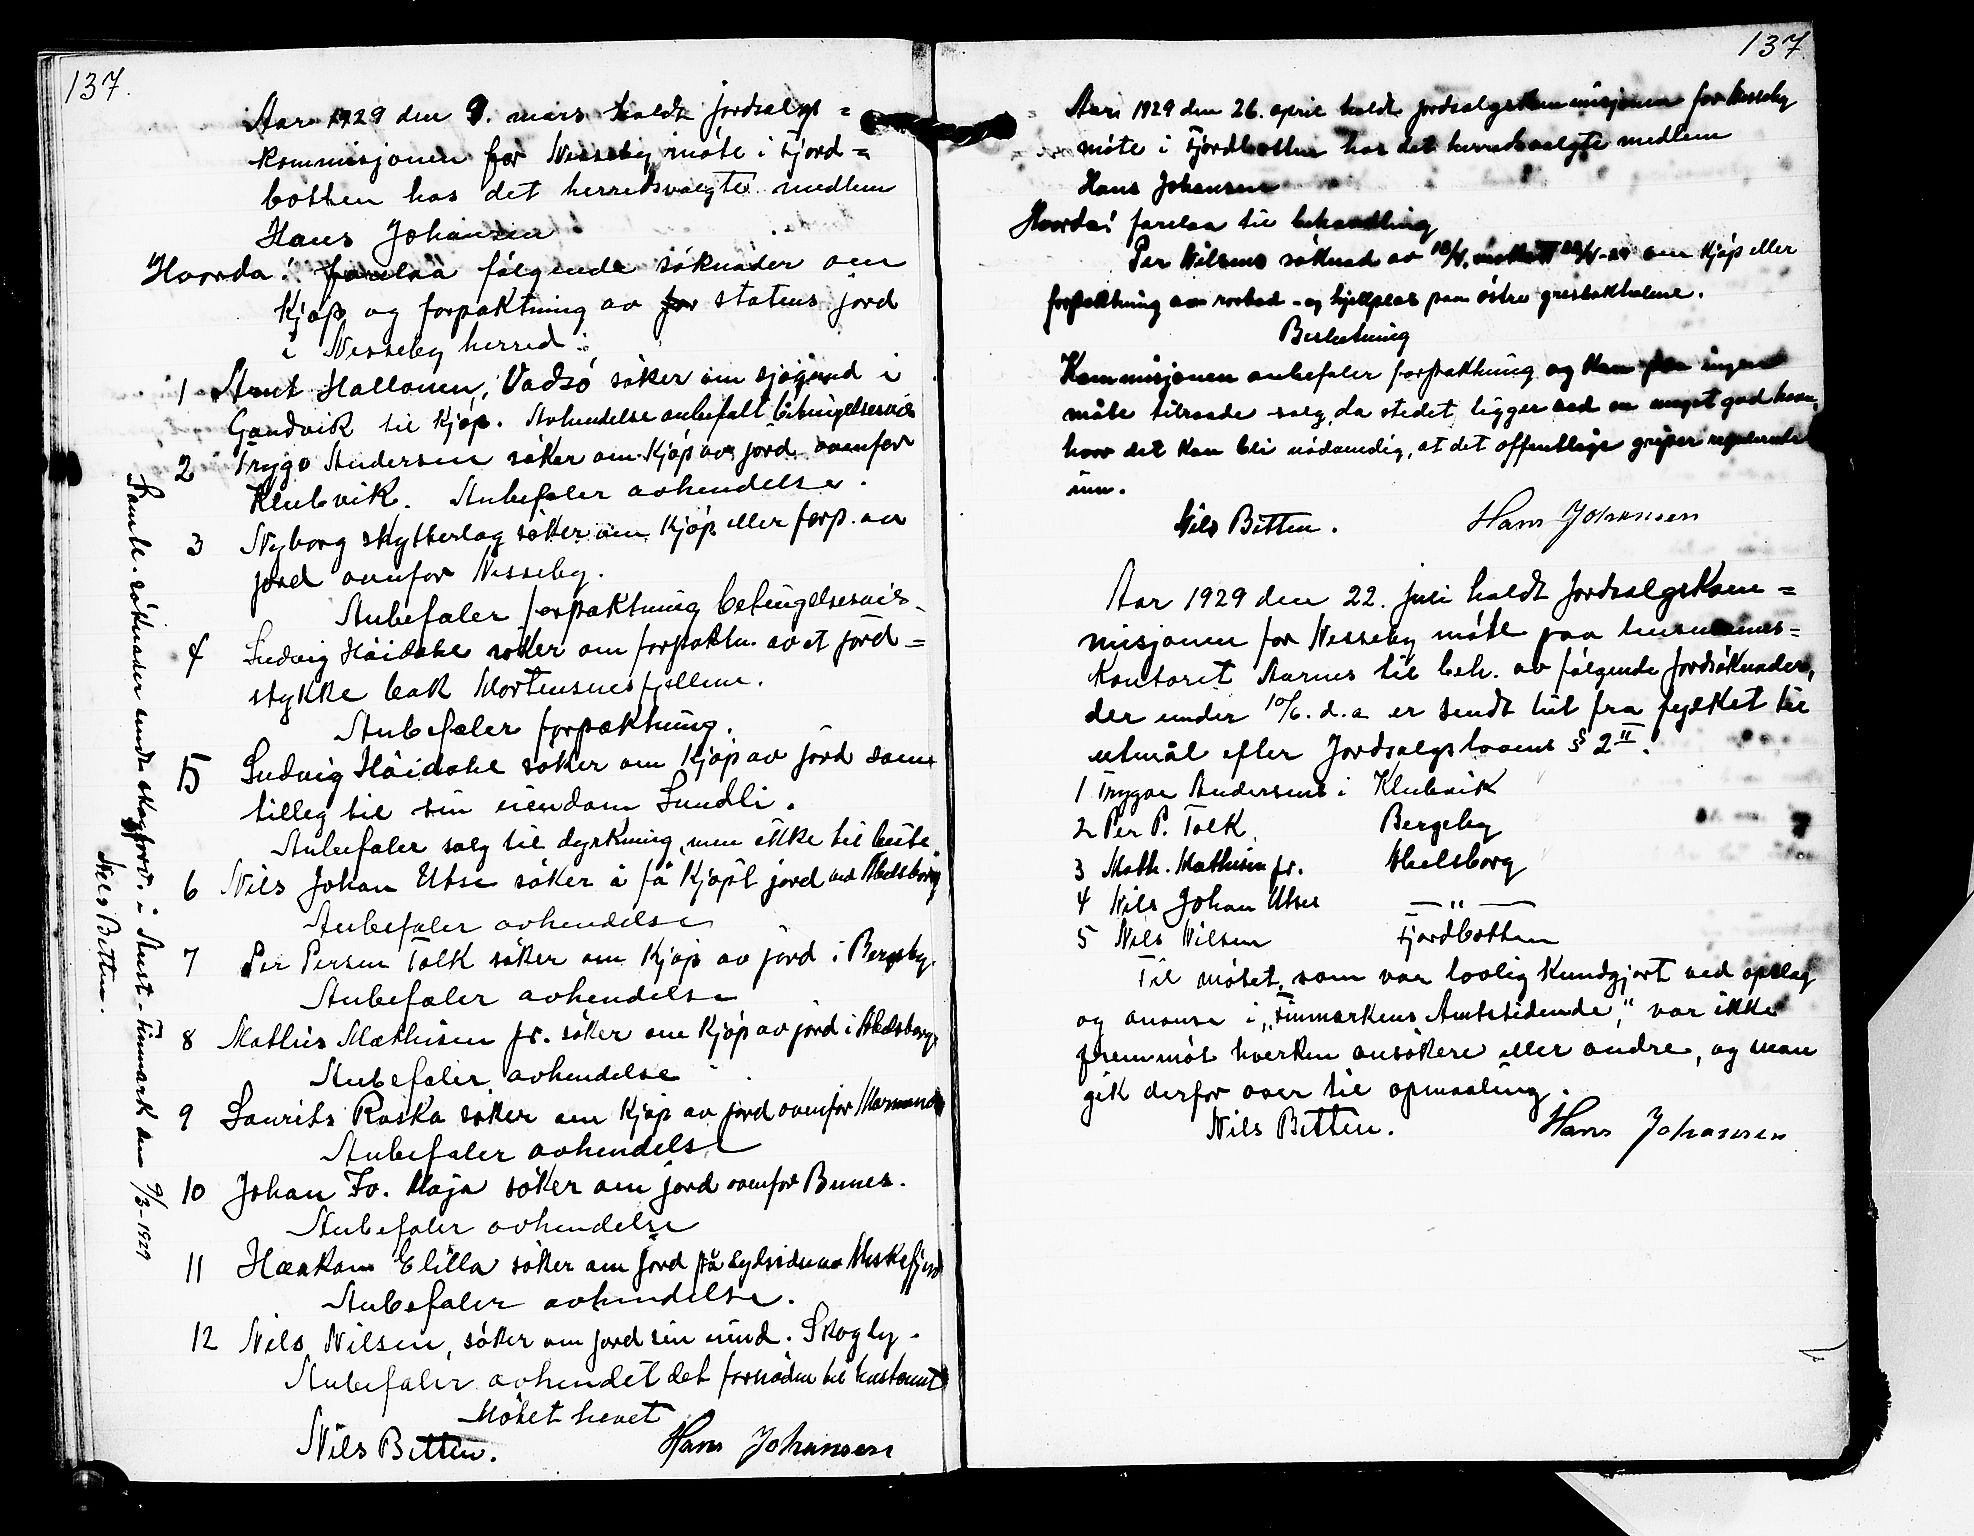 137.
Aar 1929 den 9. mars holdt jordsalgs =
kommisjonen for Nesseby møte i Fjord =
botten hos det herredsvalgte medlem
Hans Johansen
Hvorda! forelaa følgende søknader om
kjøp og forpaktning av for statens jord
i Nesseby herred:
1 Arnt Hallonen, Vadsø søker om sjøgrund i
Gandvik til kjøp. Avhendelse anbefalt betingelsesvis
2 Trygve Andersen søker om kjøp av jord ovenfor
Klubvik. Anbefaler avhendelse.
3 Nyborg skytterlag søker om kjøp eller forp. av
jord ovenfor Nesseby.
Anbefaler forpaktning betingelsesvis.
4 Ludvig Håidahl søker om forpaktn. av et jord =
stykke bak Mortensnesfjellene.
Anbefaler forpaktning.
5 Ludvig Håidahl søker om kjøp av jord som
tilleg til sin eiendom Sundli.
Anbefaler salg til dyrkning, men ikke til beite.
6 Nils Johan Utse søker å få kjøpt jord ved Abelsborg
Anbefaler avhendelse
7 Per Persen Tolk søker om kjøp av jord i Bergeby.
Anbefaler avhendelse
8 Mathis Mathisen jr. søker om kjøp av jord i Abelsborg.
Anbefaler avhendelse
9 Laurits Raska søker om kjøp av jord ovenfor
Anbefaler avhendelse
10 Johan Fo. Maja søker om jord ovenfor Bunes.
Anbefaler avhendelse
11 Haakon Elilla søker om jord på sydsiden av Meskefjord
Anbefaler avhendelse.
12 Nils Nilsen, søker om jord sin eiend. Skogly.
Anbefaler avhendet det fornødne til hustomt
Møtet hevet
Nils Bitten. Hans Johansen
Samtl. søknader sendt skogforv. i Aust-Finmark den 9/3-1929
Nils Bitten.
137
Aar 1929 den 26. april holdt jordsalgskommisjonen for Nesseby
møte i Fjordbotten hos det herredsvalgte medlem
Hans Johansen
Hvorda! forelaa til behandling
Per Nilsens søknad av om kjøp eller
forpaktning av rorbod- og hjellplas paa østre grestakholme.
Beslutning
Kommisjonen anbefaler forpaktning og kan paa ingen
måte tilraade salg, da stedet ligger ved en meget god havn,
hvor det kan bli nødvendig, at det offentlige griper regulerende
inn.
Nils Bitten. Hans Johansen
Aar 1929 den 22. juli holdt jordsalgskom =
misjonen for Nesseby møte paa lensmanns =
kontoret Aarnes til beh. av følgende jordsøknader,
der under 10/6. d.a er sendt hit fra fylket til
utmål efter Jordsalgslovens § 2 II.
1 Trygve Andersens i Klubvik
2 Per P. Tolk Bergeby
3 Math. Mathisen jr. Abelsborg
4 Nils Johan Utses — " —
5 Nils Nilsen Fjordbotten
Til møtet, som var lovlig kundgjort ved opslag
og anonse i „Finmarkens Amtstidende", var ikke
fremmøt hverken ansøkere eller andre, og man
gik derfor over til opmaaling.
Nils Bitten. Hans Johansen